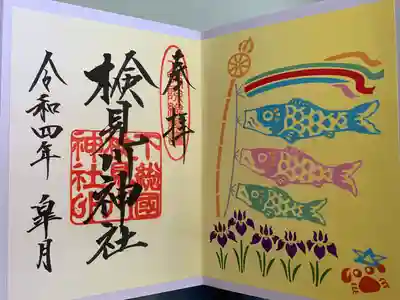 奉拝
検見川神社
下総國
神社印
令和四年 皐月